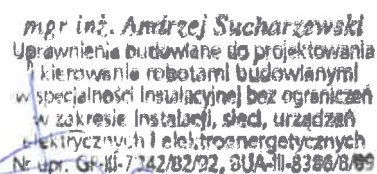 mgr inż. Andrzej Sucharzewski
Uprawnienia budowlane do projektowania
i kierowania robotami budowlanymi
w specjalności instalacyjnej bez ograniczeń
w zakresie instalacji, sieci, urządzeń
elektrycznych i elektroenergetycznych
Nr upr. GP-III-7342/82/92, BUA-III-8386/8/89